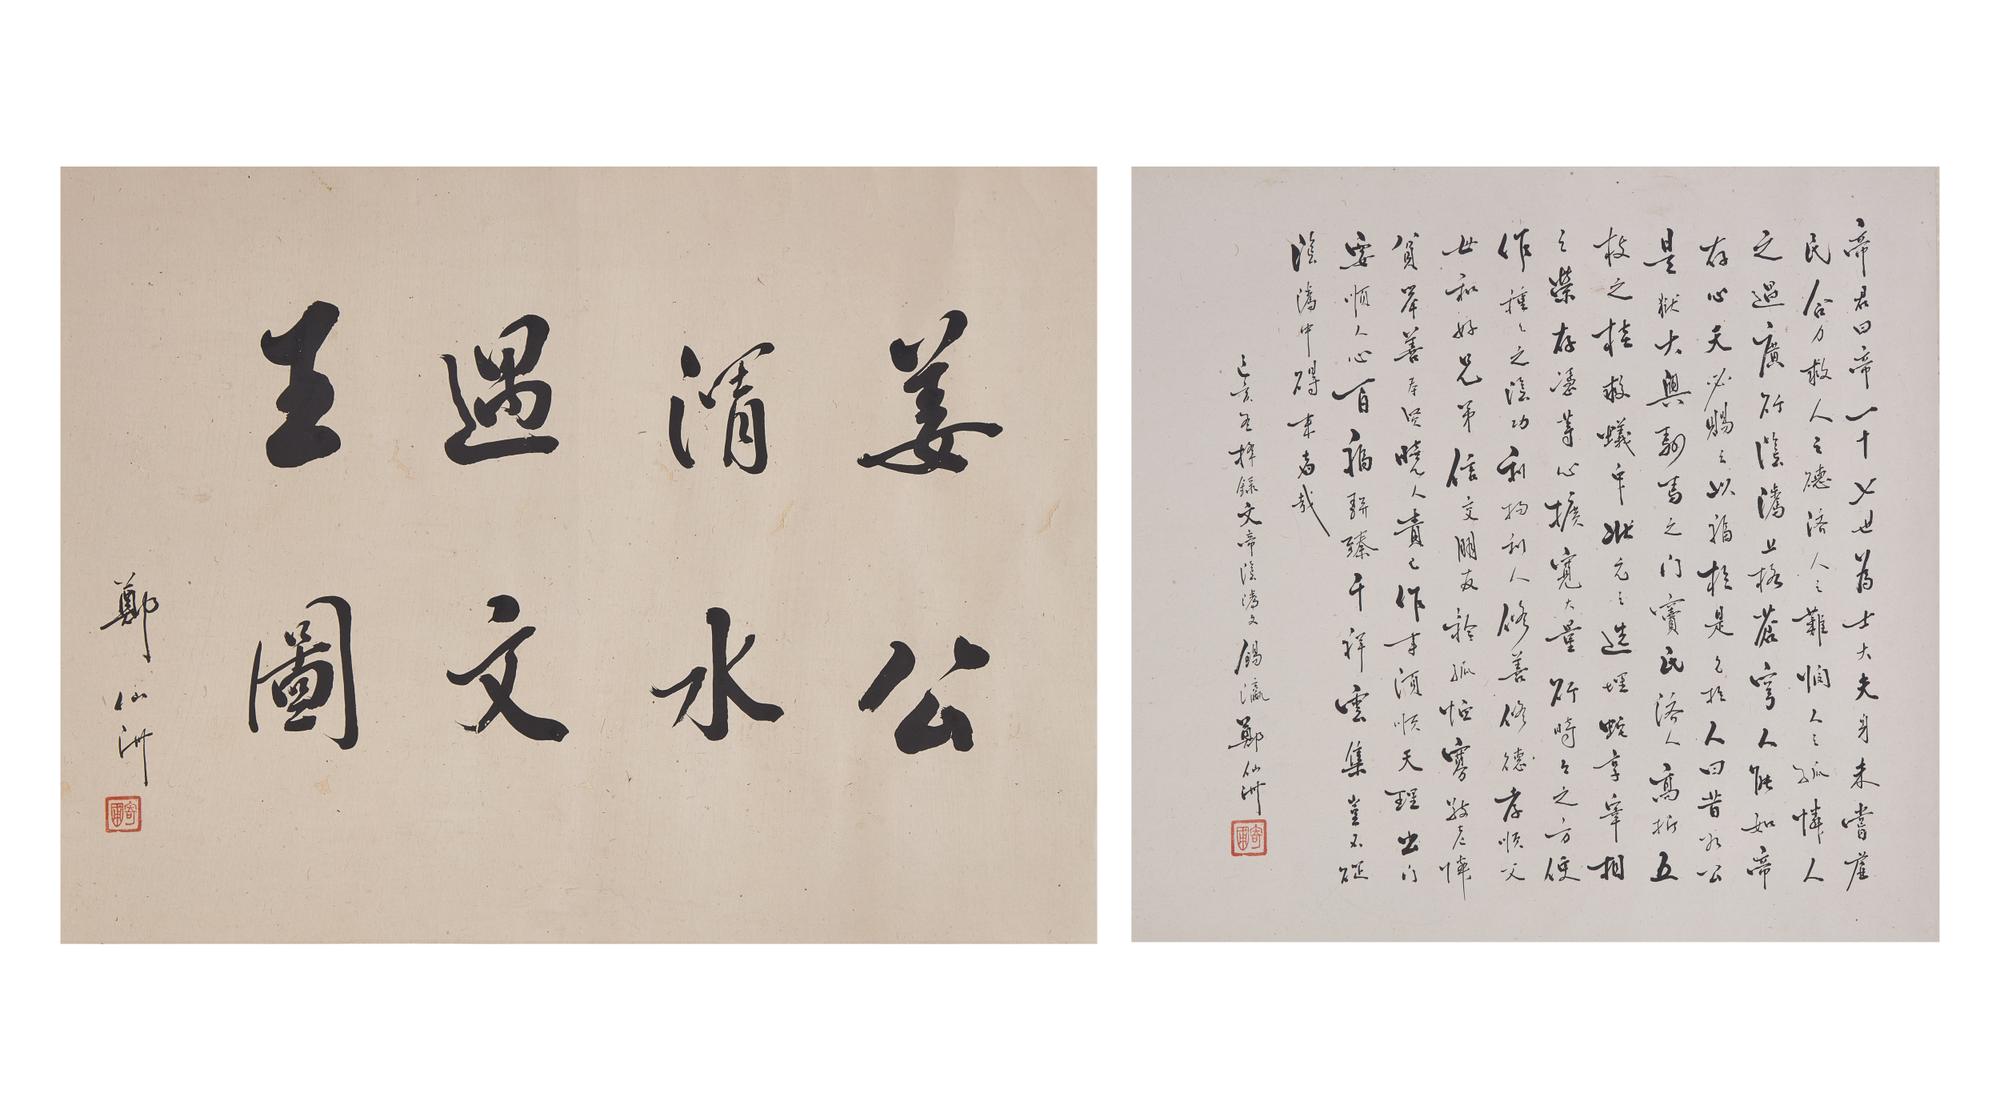 姜公
渭水
遇文
王圖
鄭仙洲
寄圃
帝君曰帝一十七世為士大夫身未嘗虐
民合力救人之德濟人之難憫人之孤憐人
之過廣所陰騭上格蒼穹人能如帝
存心天必賜之以福於是於人曰昔公
是獄大興駟馬之門竇氏濟人高折五
枝之桂救蟻中狀元之選埋蛇享宰相
之榮存憑等心擴寬大量所時々之方便
作種々之陰功利物利人修善修德孝順父
母和好兄弟信交朋友矜孤恤寡敬老憐
貧舉善曉人責己作事須順天理出門
要順人心百福駢臻千祥雲集豈不從
陰騭中得來者哉
己亥冬擇錄文帝陰騭文錫瀛鄭仙洲
寄圃